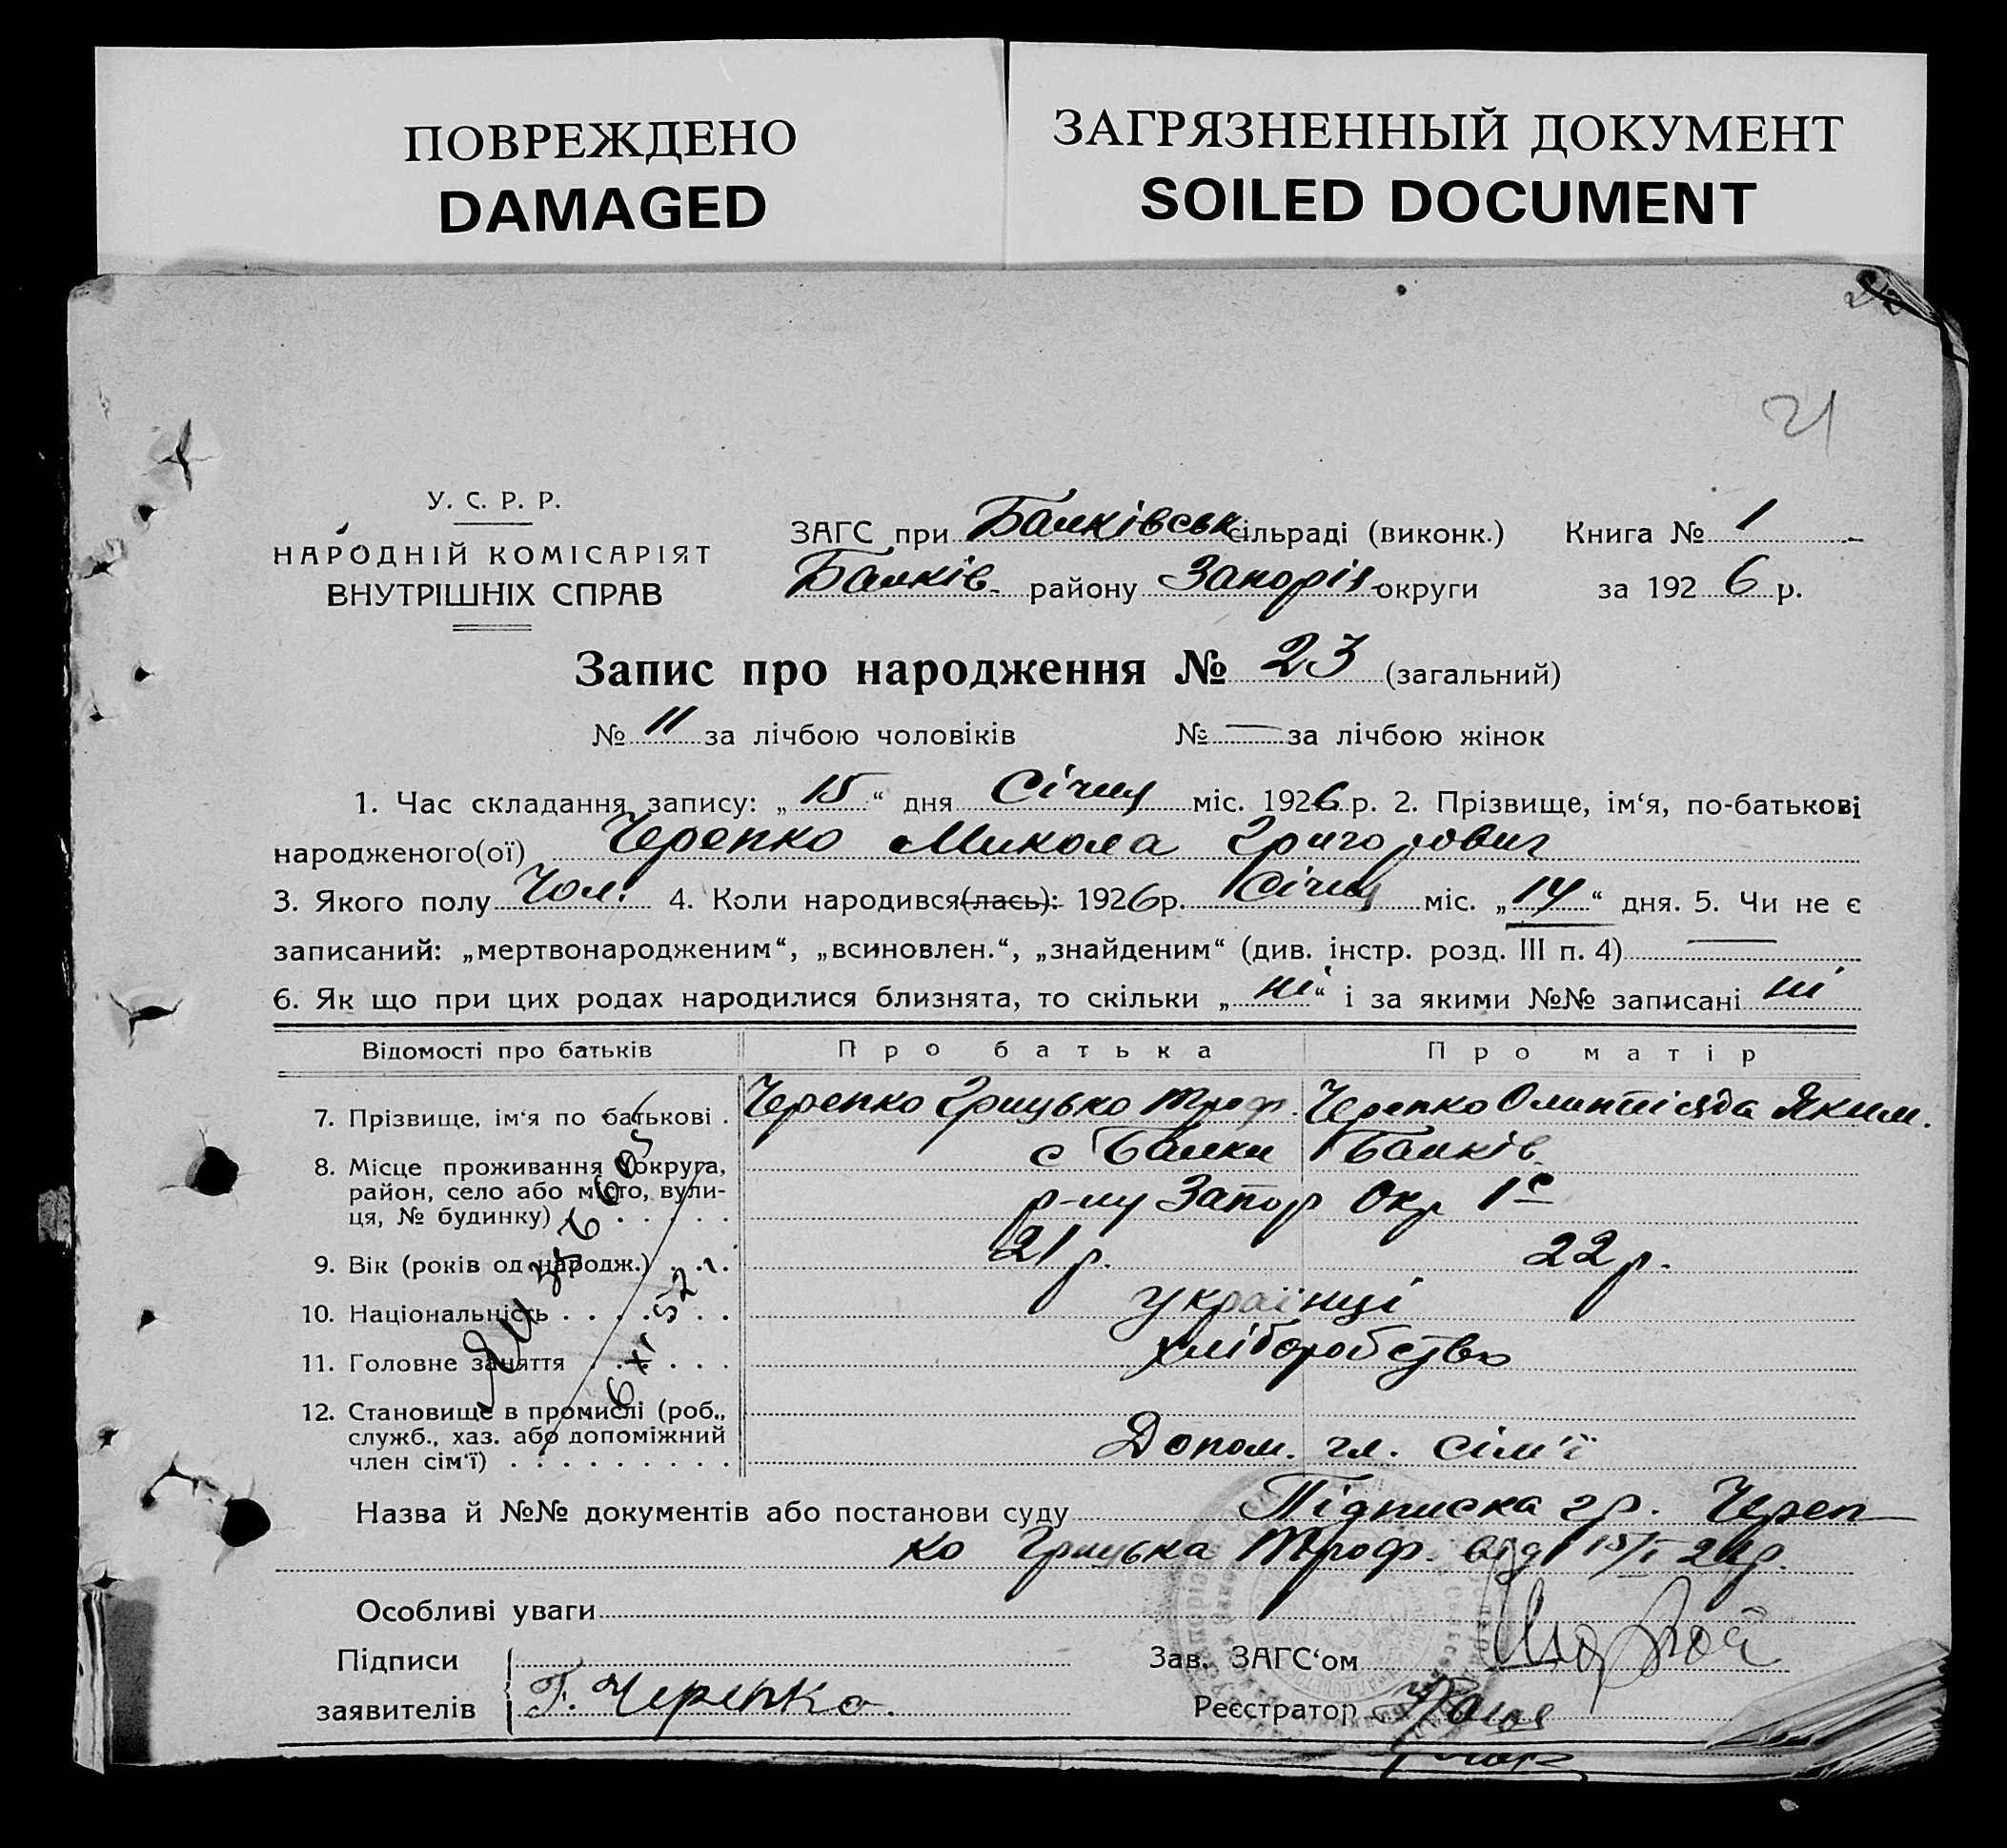 ПОВРЕЖДЕНО
DAMAGED
ЗАГРЯЗНЕННЫЙ ДОКУМЕНТ
SOILED DOCUMENT
21
У. С. Р. Р.
НАРОДНІЙ КОМІСАРІЯТ
ВНУТРІШНІХ СПРАВ
ЗАГС при Балківськ сільраді (виконк.) Книга № 1
Балків. району Запоріз. округи за 1926 р.
Запис про народження № 23 (загальний)
№ 11 за лічбою чоловіків № — за лічбою жінок
1. Час складання запису: „15“ дня Січня міс. 1926 р. 2. Прізвище, ім‘я, по-батькові
народженого(ої) Черепко Микола Григорович
3. Якого полу Чол. 4. Коли народився(лась): 1926 р. Січня міс. „14“ дня. 5. Чи не є
записаний: „мертвонародженим“, „всиновлен.“, „знайденим“ (див. інстр. розд. III п. 4) —
6. Як що при цих родах народилися близнята, то скільки „ні“ і за якими №№ записані ні
Відомості про батьків Про батька Про матір
7. Прізвище, ім‘я по батькові . Черепко Грицько Троф. Черепко Олимпіяда Яким.
8. Місце проживання (округа, с Балки Балків.
район, село або місто, вули- р-ну Запор Окр
ця, № будинку) . . . . .
9. Вік (років од народж.) . . . 21 р. 22 р.
10. Національність . . . . . . українці
11. Головне заняття . . . . . хліборобство
12. Становище в промислі (роб.,
служб., хаз. або допоміжний Допом. гл. сім'ї
член сім‘ї) . . . . . . . . .
Назва й №№ документів або постанови суду Підписка гр. Череп-
ко Грицька Троф. від 15/I 26р.
Особливі уваги
Підписи Зав. ЗАГС‘ом
заявителів Г. Черепко. Реєстратор